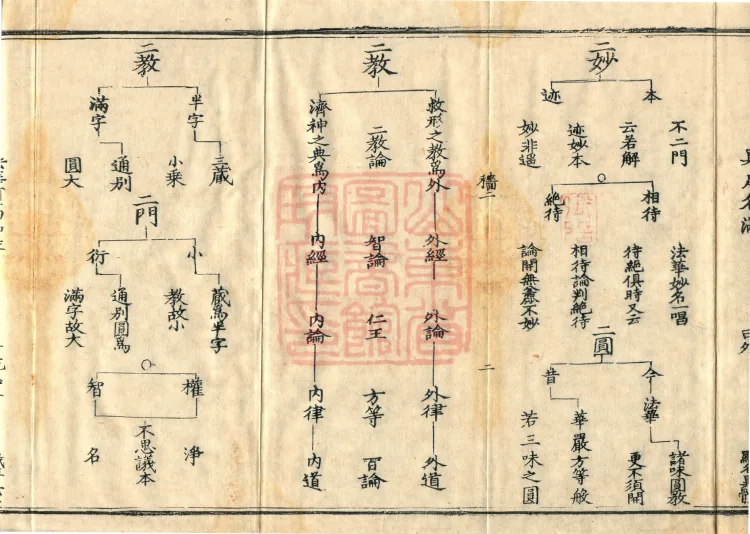 二妙
本
迹
不二門
云若解
迹妙本
妙非遥
相待
絕待
法華妙名一唱
待絕俱時又云
相待論判絕待
論開無麁不妙
二圓
今
昔
法華
諸味圓教
更不須開
華嚴方等般
若三味之圓
二
二教
救形之教爲外
外經
外論
外律
外道
二教論
智論
仁王
方等
百論
濟神之典爲内
内經
内論
内律
内道
二教
半字
滿字
三藏
小乘
通別
圓大
二門
小
衍
藏爲半字
教故小
通別圓爲
滿字故大
權
智
淨
不思議本
名